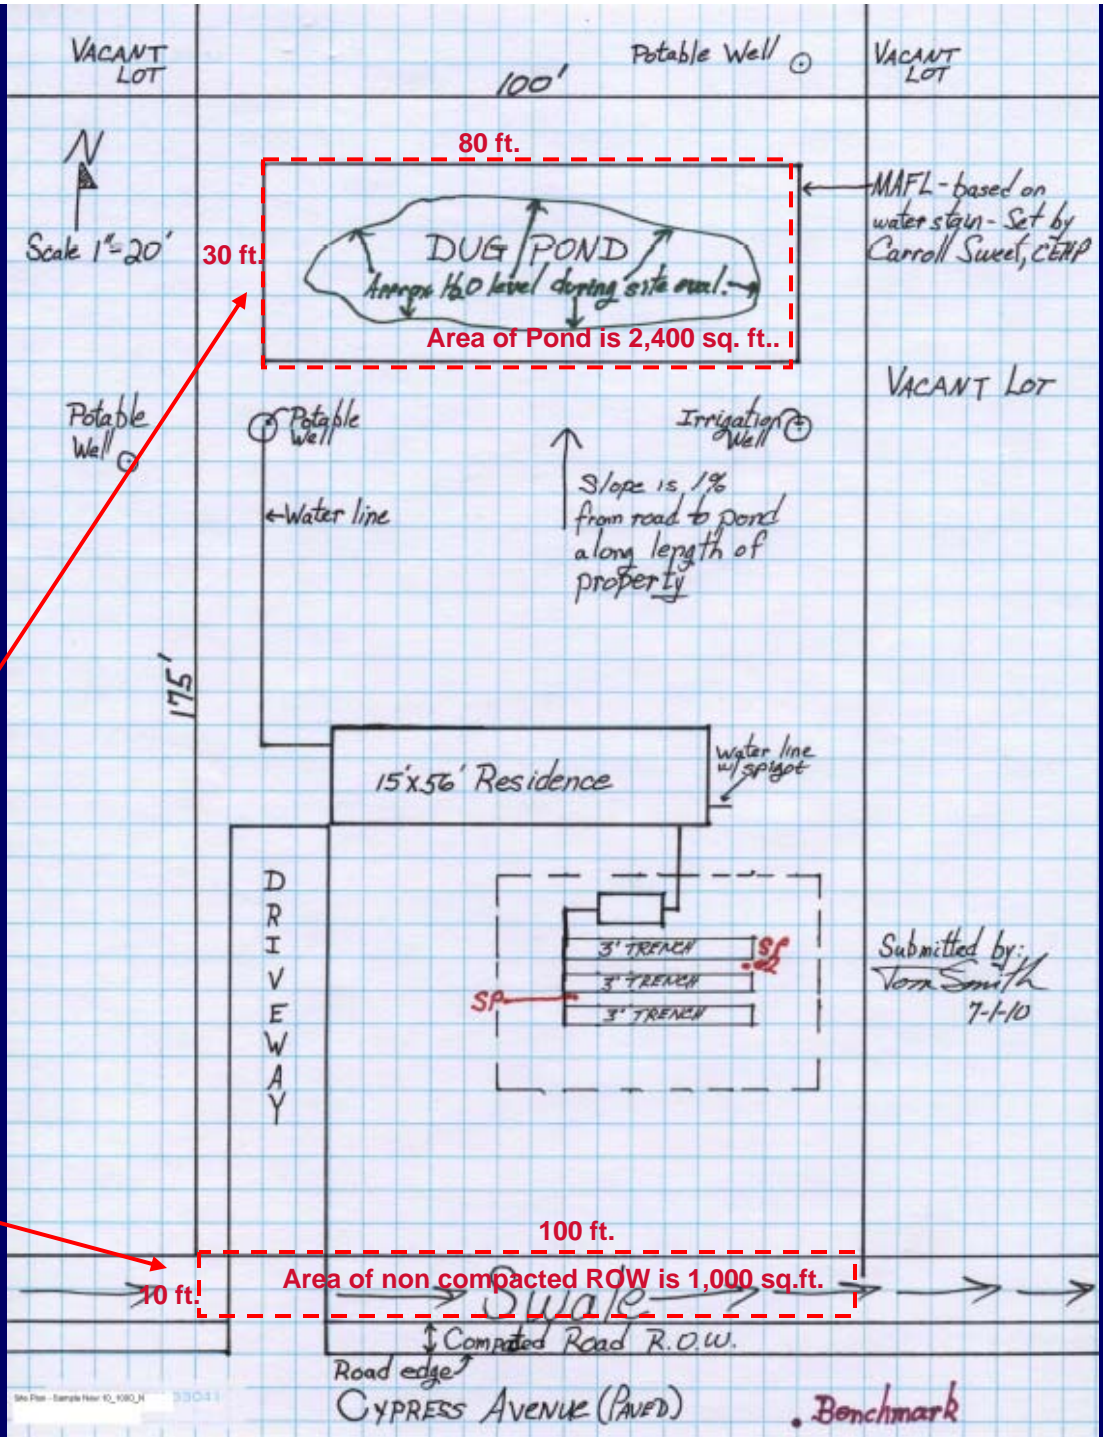 VACANT
LOT
Potable Well
VACANT
LOT
100'
N
Scale 1"=20'
80 ft.
30 ft.
DUG POND
Approx H2O level during site eval.
Area of Pond is 2,400 sq. ft..
MAFL - based on
water stain - Set by
Carroll Sweet, CEHP
VACANT LOT
Potable
Well
Potable
Well
Irrigation
Well
Water line
Slope is 1%
from road to pond
along length of
property
175'
15'x56' Residence
water line
w/ spigot
DRIVEWAY
3' TRENCH
SP
#2
3' TRENCH
SP
3' TRENCH
Submitted by:
Tom Smith
7-1-10
100 ft.
10 ft.
Area of non compacted ROW is 1,000 sq.ft.
Swale
Compated Road R.O.W.
Road edge
CYPRESS AVENUE (PAVED)
. Benchmark